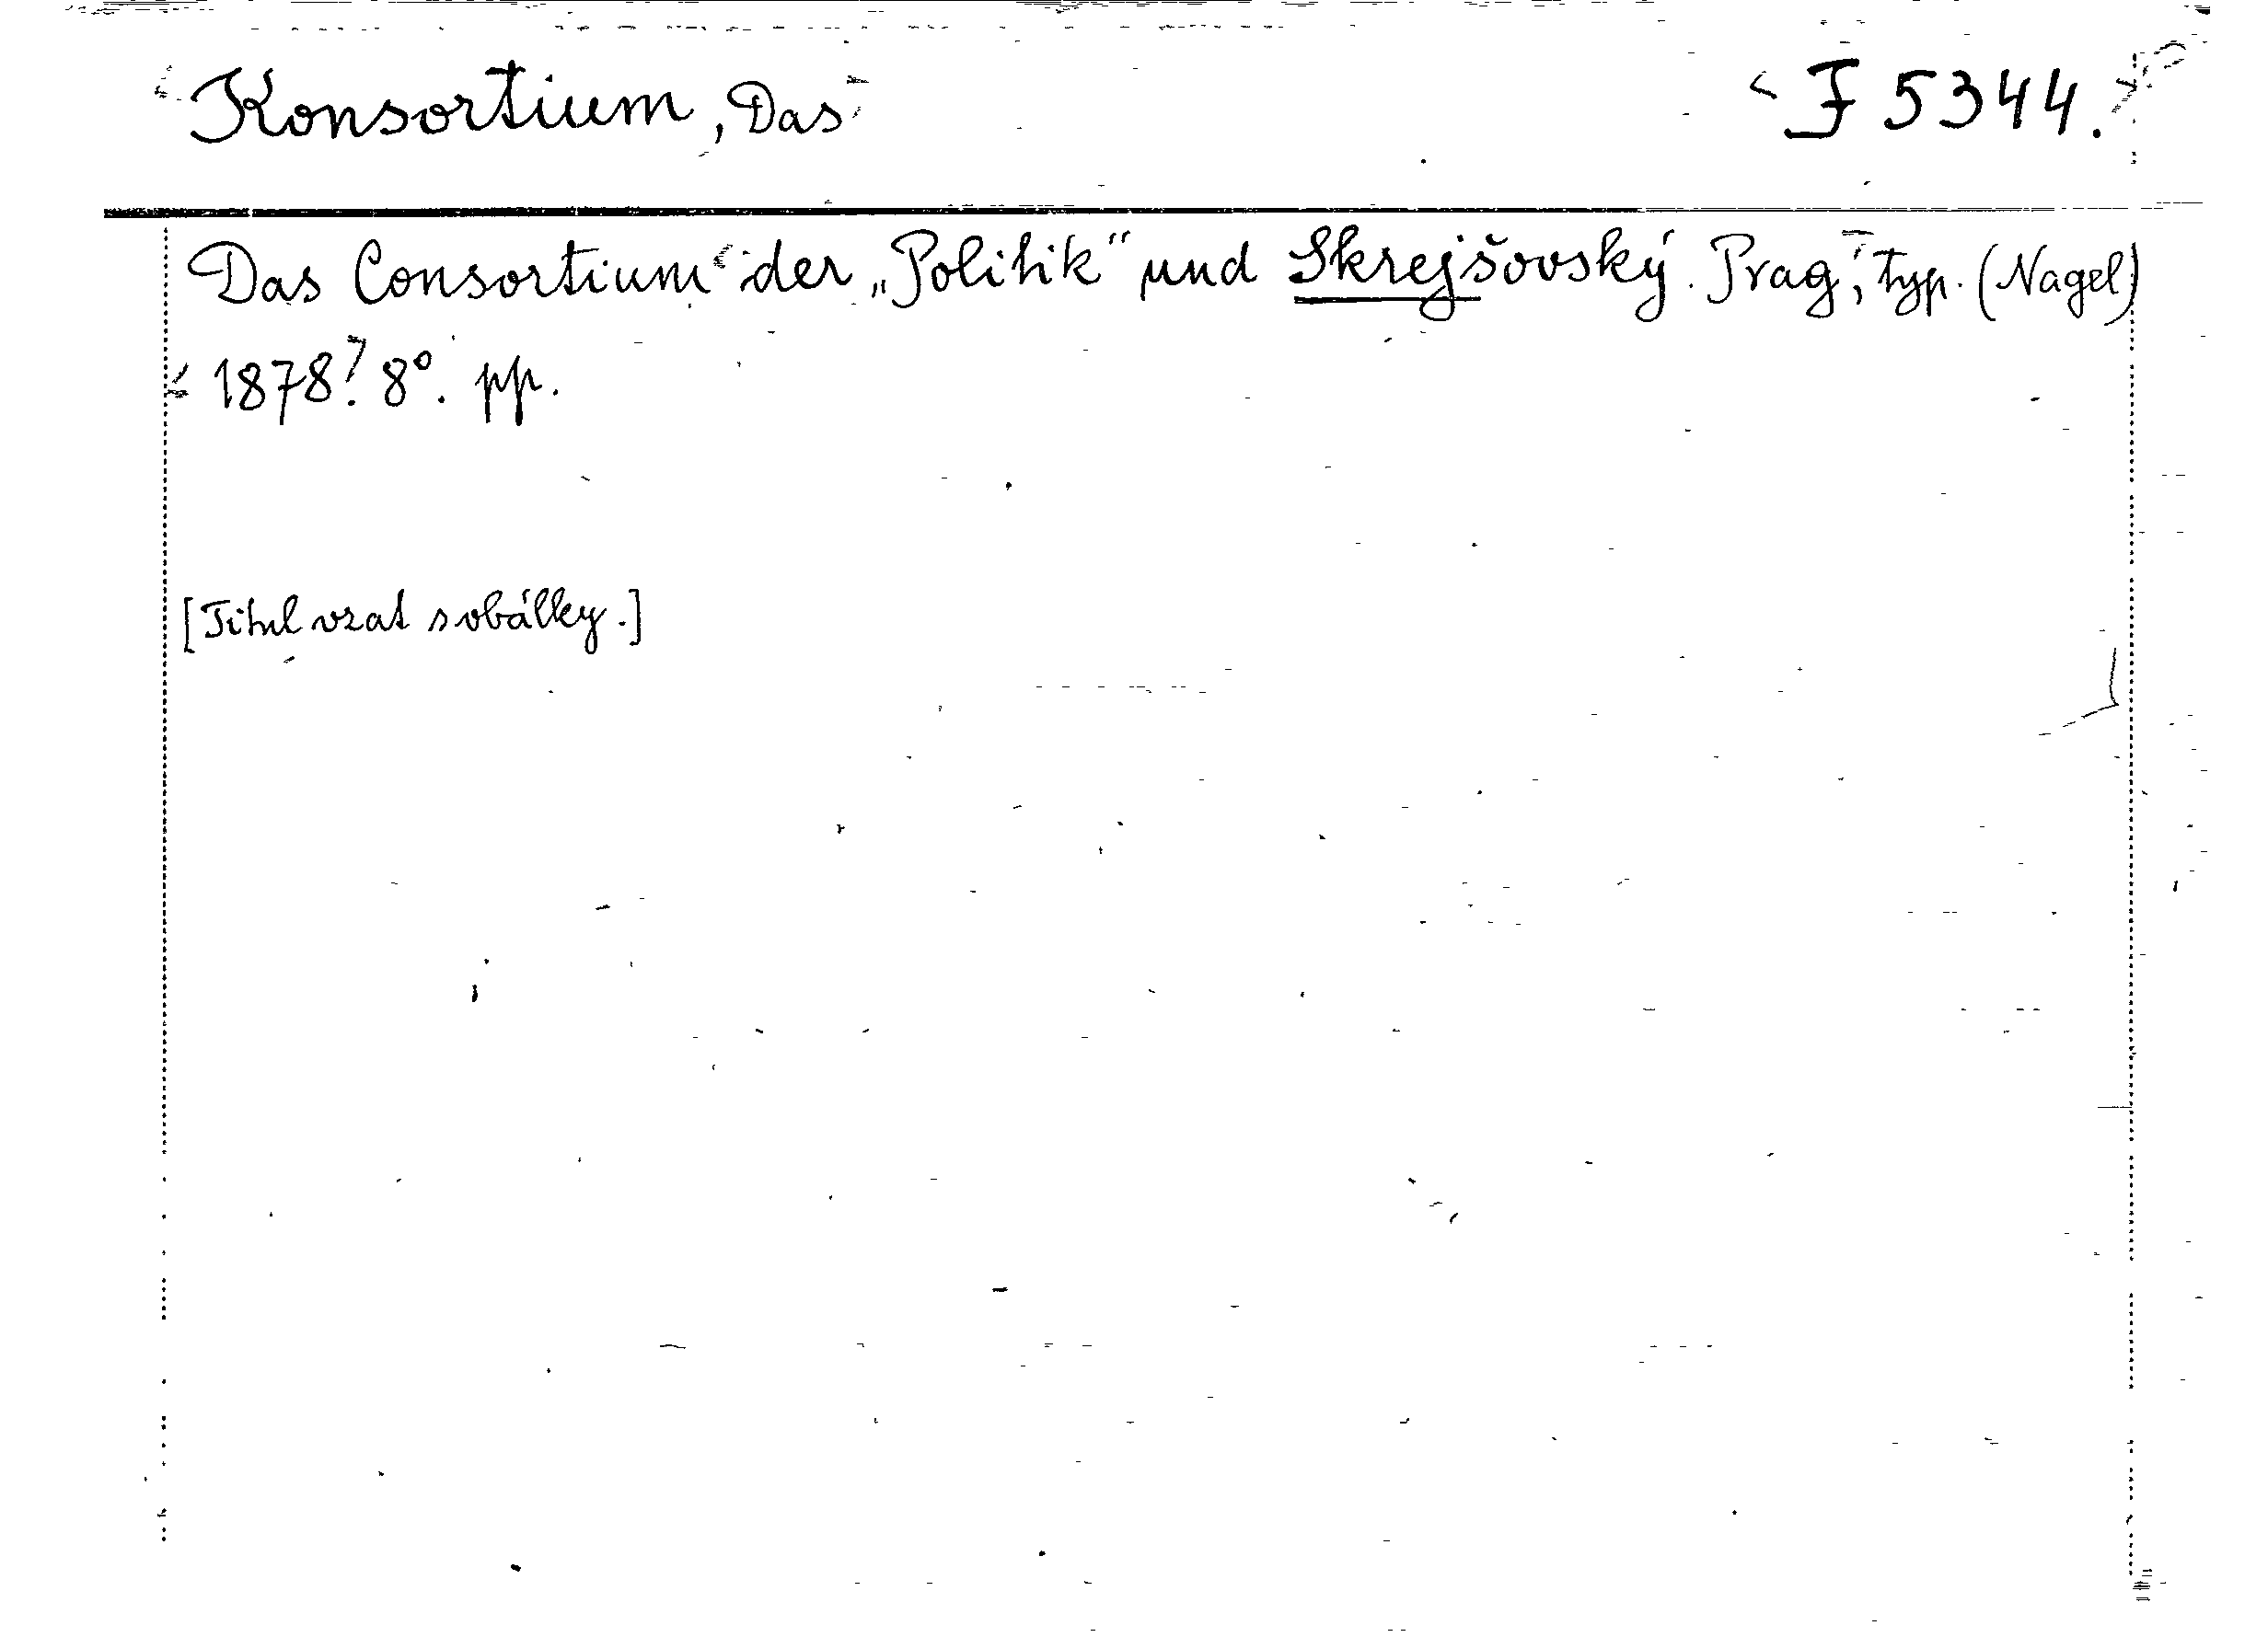 Konsortium, Das
J 5344.
Das Consortium der „Politik“ und Skrejšovský. Prag, typ. (Nagel)
1878? 8°. pp.
[Titul vzat s obálky.]